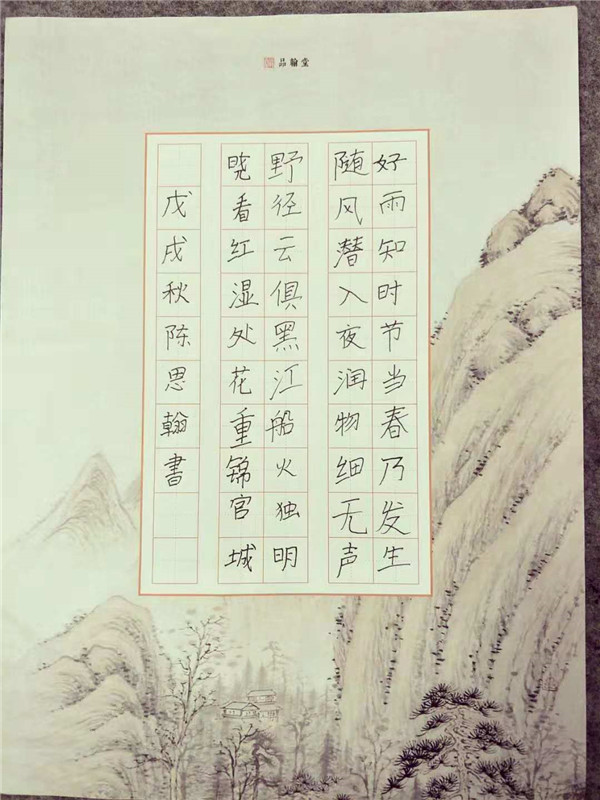 品翰堂
好雨知时节当春乃发生
随风潜入夜润物细无声
野径云俱黑江船火独明
晓看红湿处花重锦官城
戊戌秋陈思翰書